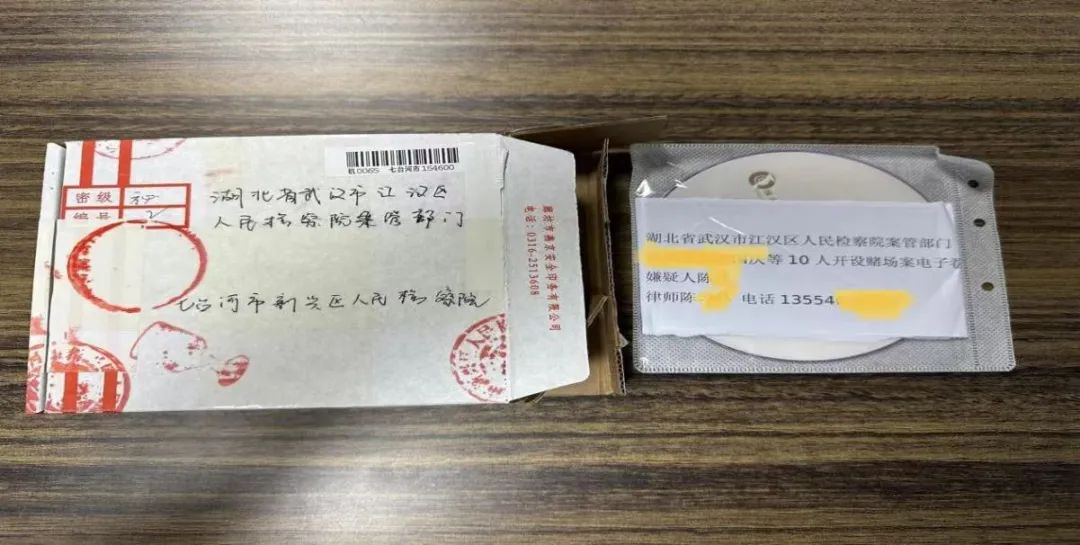 机0065 七台河市154600
密级
编号
湖北省武汉市江汉区
人民检察院案管部门
七台河市新兴区人民检察院
廊坊市燕京安全印务有限公司
电话：0316-2513608
湖北省武汉市江汉区人民检察院案管部门
等 10 人开设赌场案电子
嫌疑人陈
律师陈 电话 13554